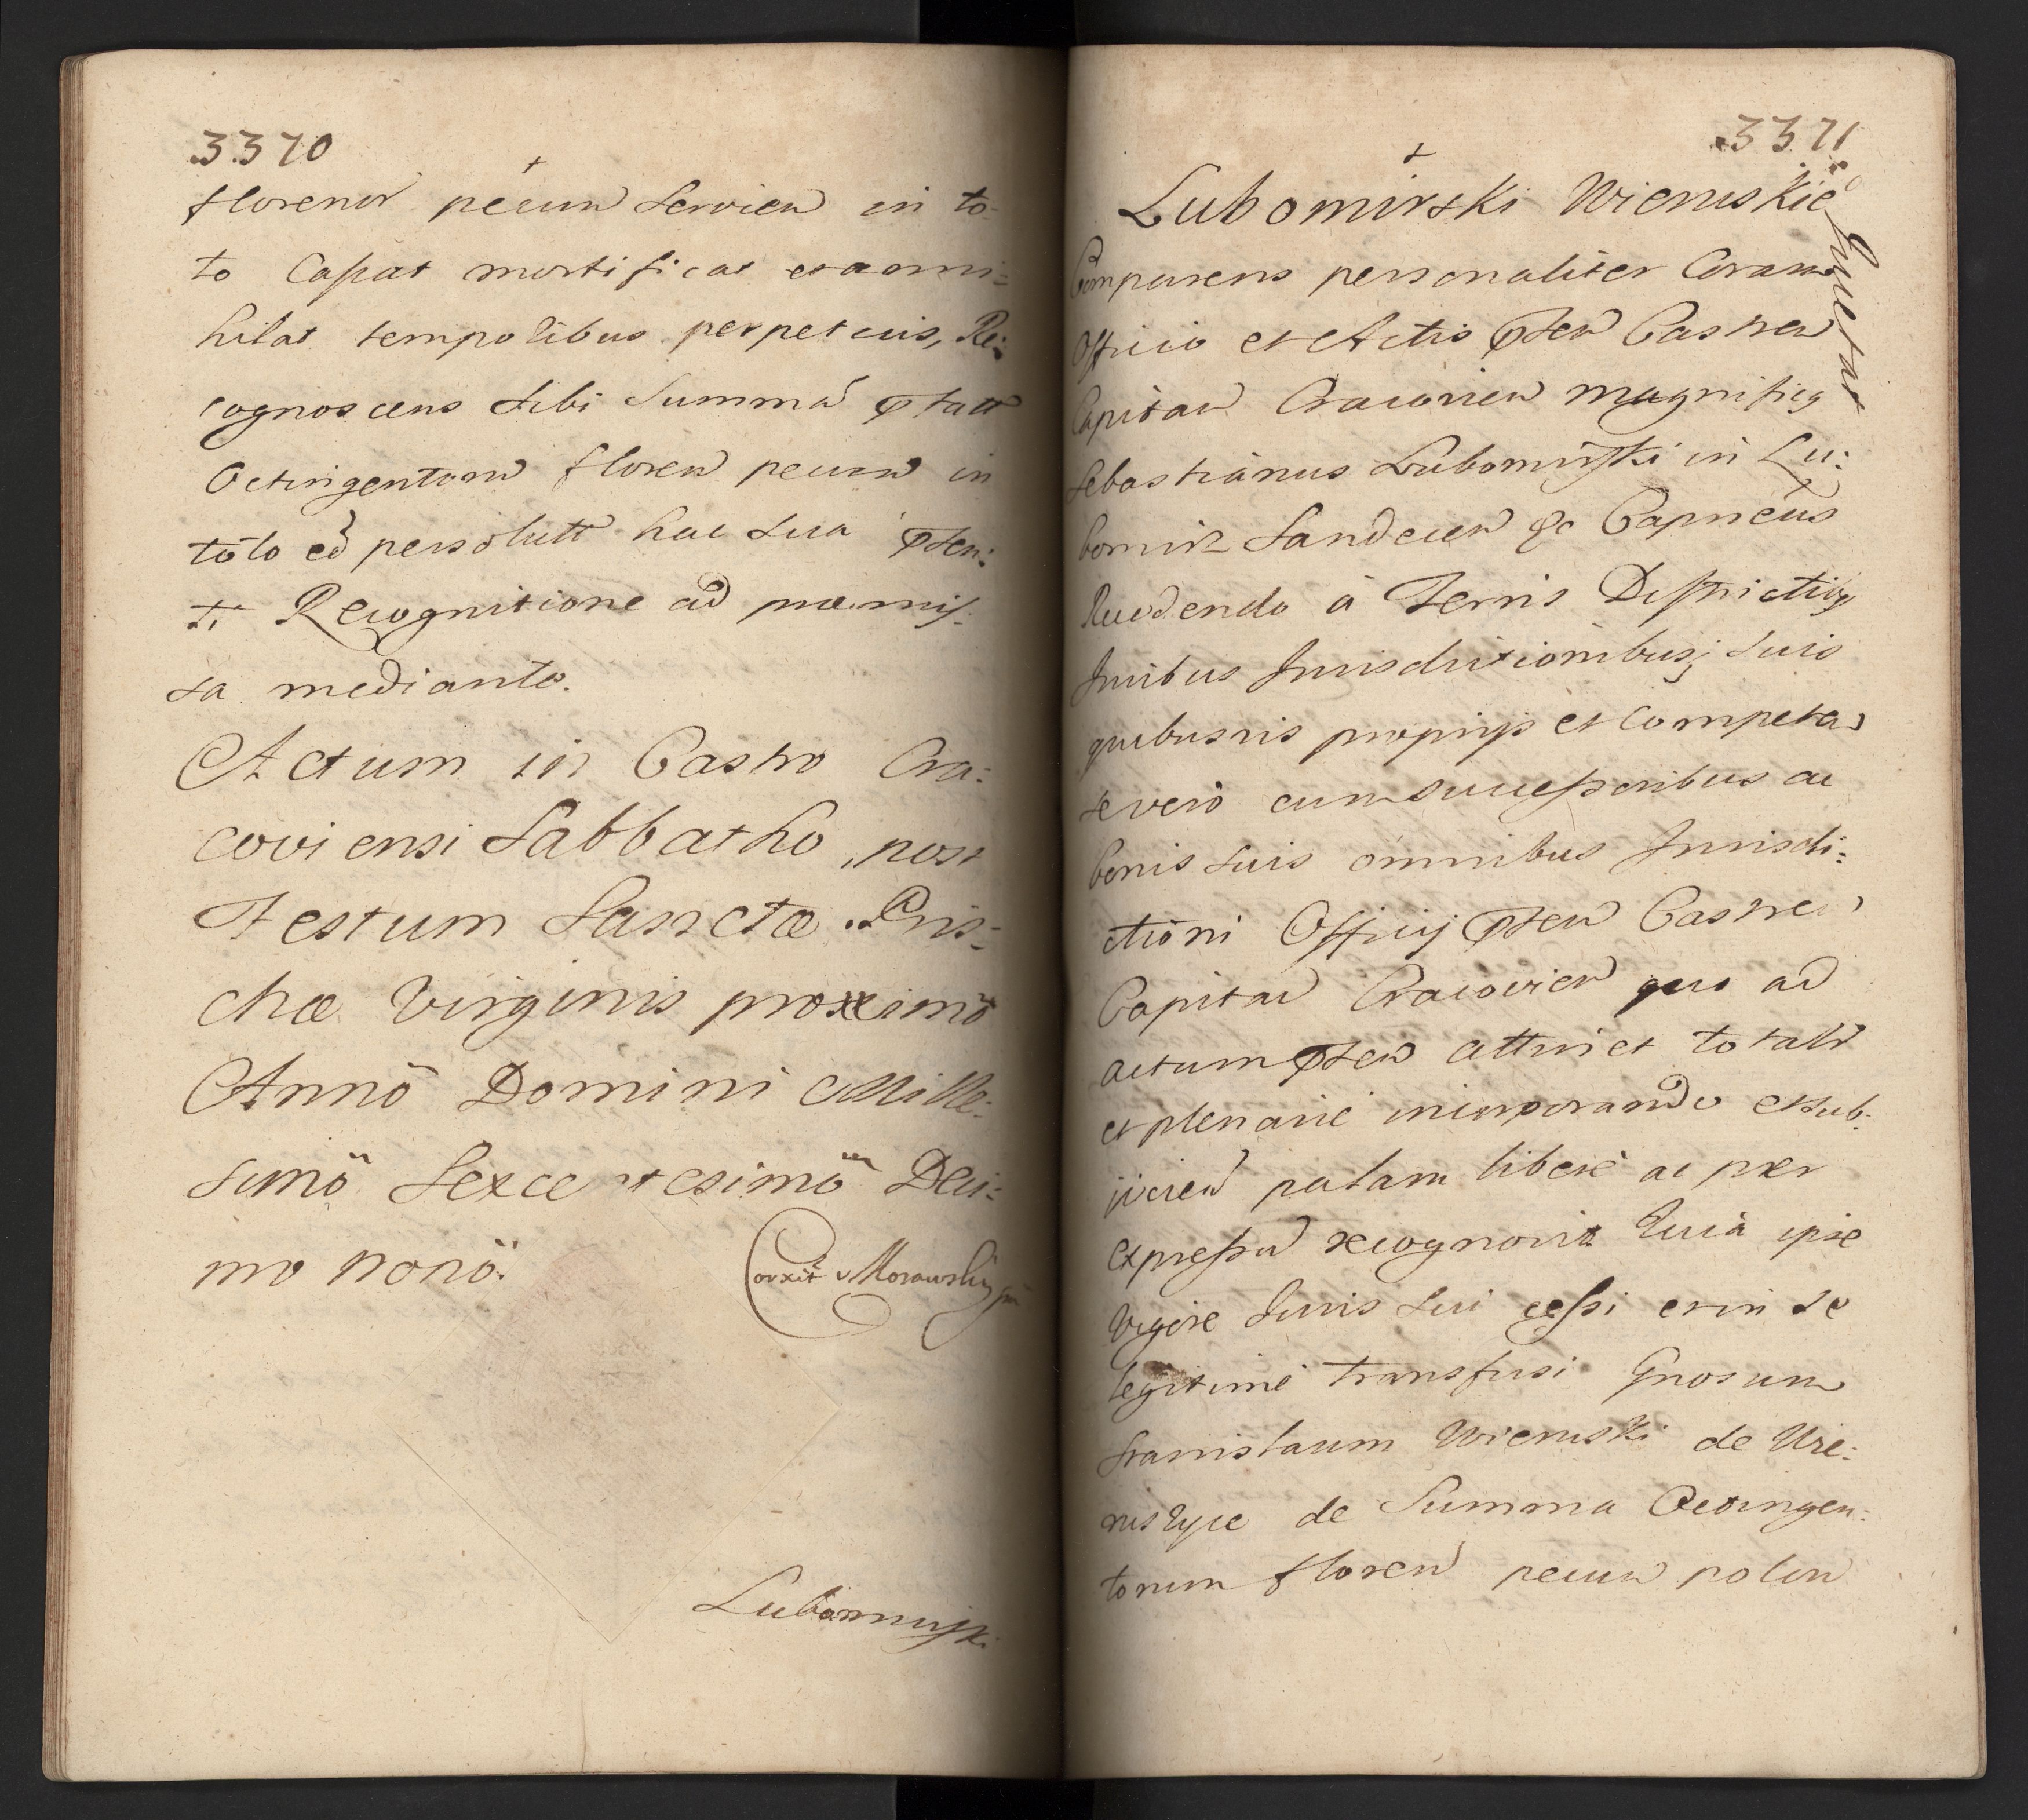 3370
florenor pecun servien in to-
to Capat mortificat et anni=
hilat temporibus perpetuis, Re=
cognoscens sibi Summa ptatt
Octingentum floren pecun in
toto ed persolutt hac sua pten:
ti Recognitione ad præmis-
sa mediante.
Actum in Castro Cra:
coviensi Sabbatho post
Festum Sanctæ Pris=
chæ Virginis proximo
Anno Domini Mille:
simo Sexcentesimo Deci:
mo nono.
Corxit Morawski
Lubomirski
3371
Lubomirski Wieruskie
quietat
Comparens personaliter Coram
Officio et Actis pten Castren
Capitan Cracovien magnificq
Sebastianus Lubomirski in Lu:
bomirz Sandecen &c Capneus
Recedendo à Terris Districtibq
Juribus Jurisdictionibusq suis
quibusvis proprijs et competen
se vero cum successoribus ac
bonis suis omnibus Jurisdi:
ctioni Officij pten Castren
Capitan Cracovien quo ad
actum pten attinet totalr
et plenarie incorporando et sub:
jicien palam libere ac per
expressum recognovit Quia ipse
vigore Juris sui cessi et in se
legitime transfusi Gnosum
Stanislaum Wieruski de Wie:
rus de Summa Octingen:
torum floren pecun polon